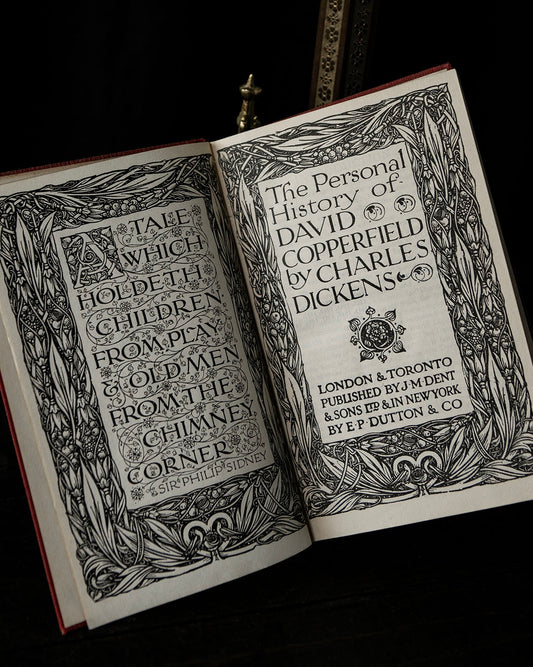 A TALE
WHICH
HOLDETH
CHILDREN
FROM PLAY
& OLD MEN
FROM THE
CHIMNEY
CORNER
SIR PHILIP SIDNEY
The Personal
History of
DAVID
COPPERFIELD
by CHARLES
DICKENS
LONDON & TORONTO
PUBLISHED BY J·M·DENT
& SONS LTD & IN NEW YORK
BY E·P·DUTTON & CO